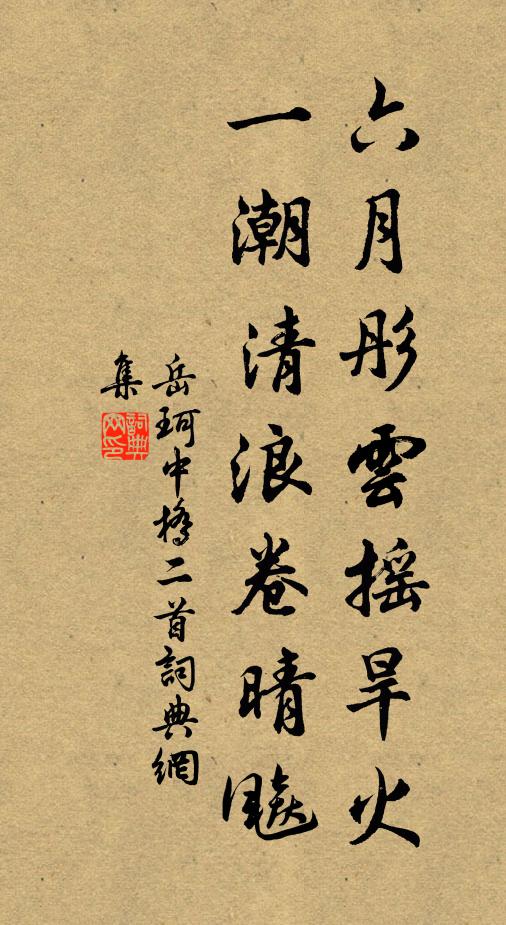 六月彤雲搖旱火
一潮清浪卷晴飈
岳珂中橋二首詞典網
集
詞典
网印